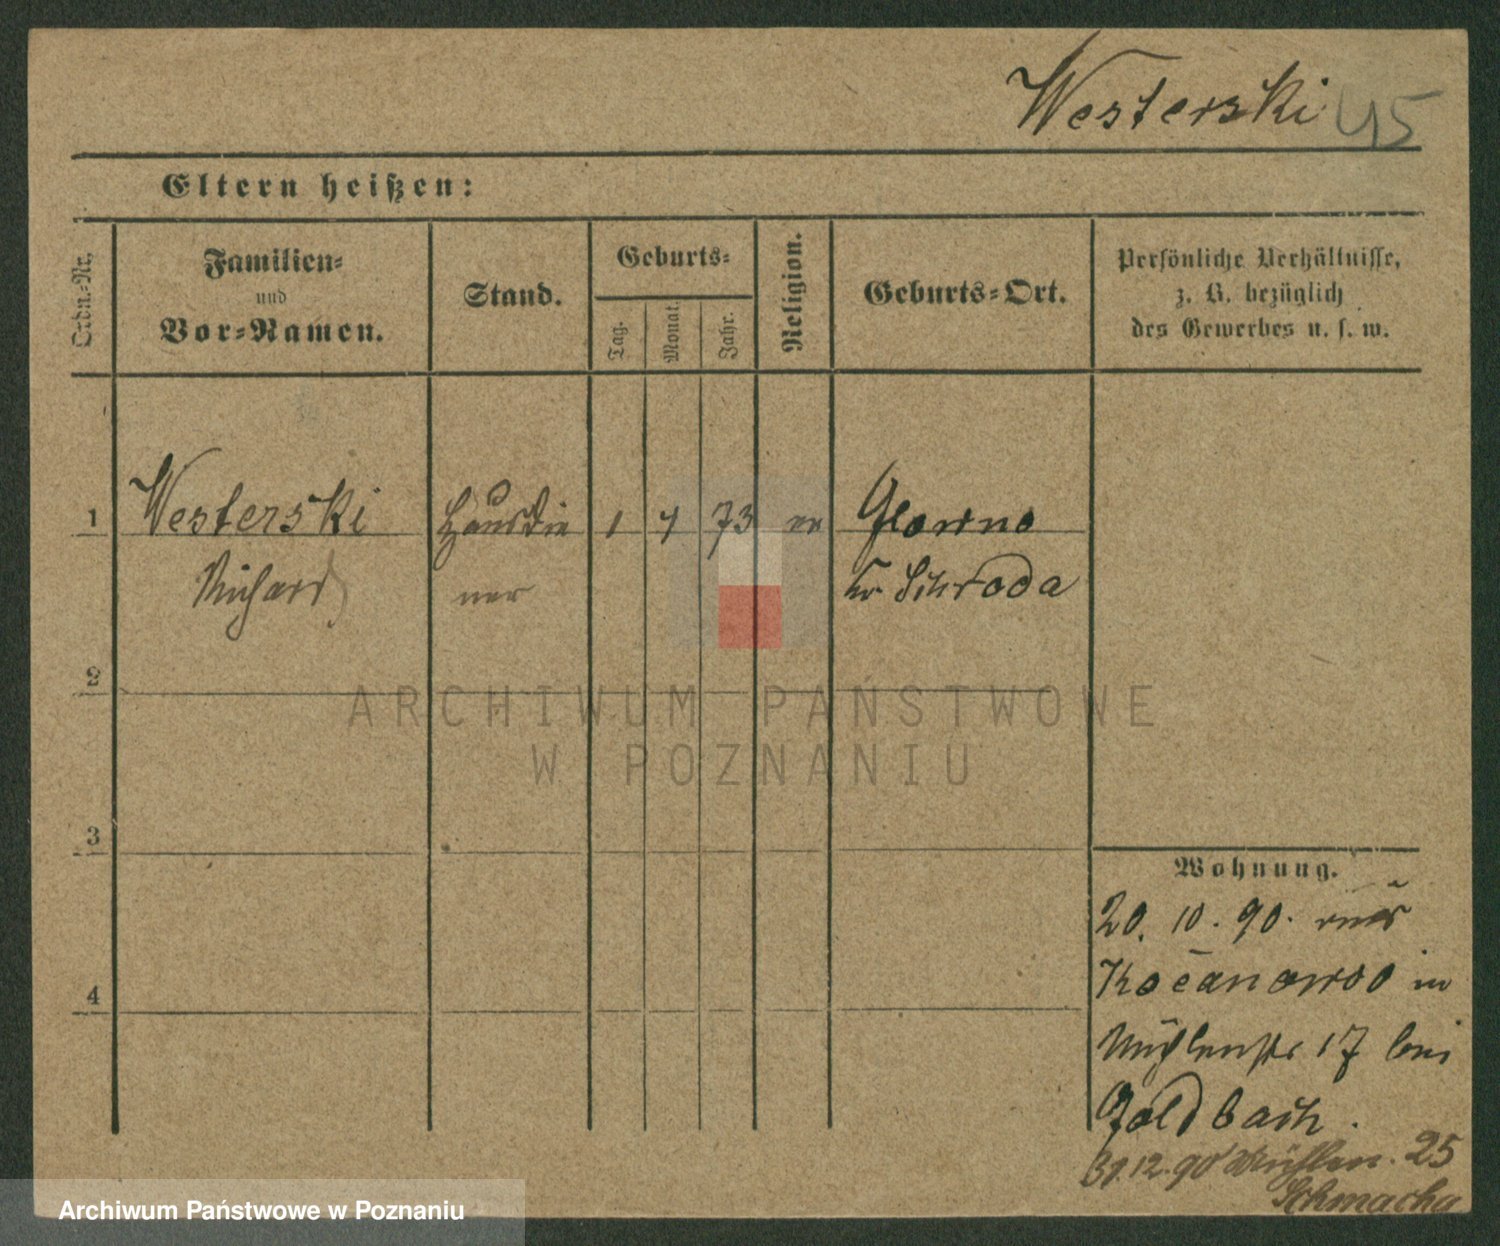 Westerski 45
Eltern heißen:
Ordn.-Nr.
Familien-
und
Vor-Namen.
Stand.
Geburts-
Tag.
Monat.
Jahr.
Religion.
Geburts-Ort.
Persönliche Verhältnisse,
z. B. bezüglich
des Gewerbes u. s. w.
1 Westerski Hausdie 1 4 73 Glowno
Richard ner Kr Schroda
2
ARCHIWUM PAŃSTWOWE
W POZNANIU
3
4
Wohnung.
20. 10. 90. aus
Kocanowo in
Mühlenstr 17 bei
Goldbach.
31.12.90 Mühlen. 25
Schmacha
Archiwum Państwowe w Poznaniu